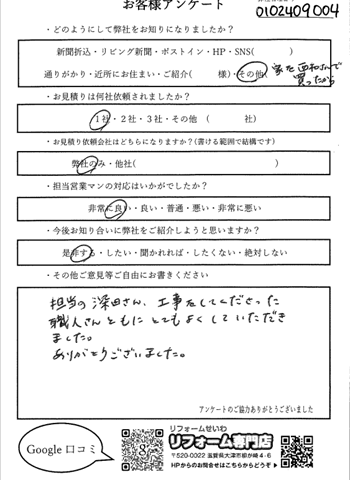 お客様アンケート
0102409004
・どのようにして弊社をお知りになりましたか？
新聞折込・リビング新聞・ポストイン・HP・SNS( )
通りがかり・近所にお住まい・ご紹介( 様)・その他( 家を西和さんで
買ったから
・お見積りは何社依頼されましたか？
1社・2社・3社・その他 ( 社)
・お見積り依頼会社はどちらになりますか？(書ける範囲で結構です)
弊社のみ・他社( )
・担当営業マンの対応はいかがでしたか？
非常に良い・良い・普通・悪い・非常に悪い
・今後お知り合いに弊社をご紹介しようと思いますか？
是非する・したい・聞かれれば・したくない・絶対しない
・その他ご意見等ご自由にお書きください
担当の深田さん、工事をしてくださった
職人さんともにとてもよくしていただき
ました。
ありがとうございました。
アンケートのご協力ありがとうございました
Google 口コミ
リフォームせいわ
リフォーム専門店
〒520-0022 滋賀県大津市柳が崎4-6
HPからのお問合せはこちらからどうぞ